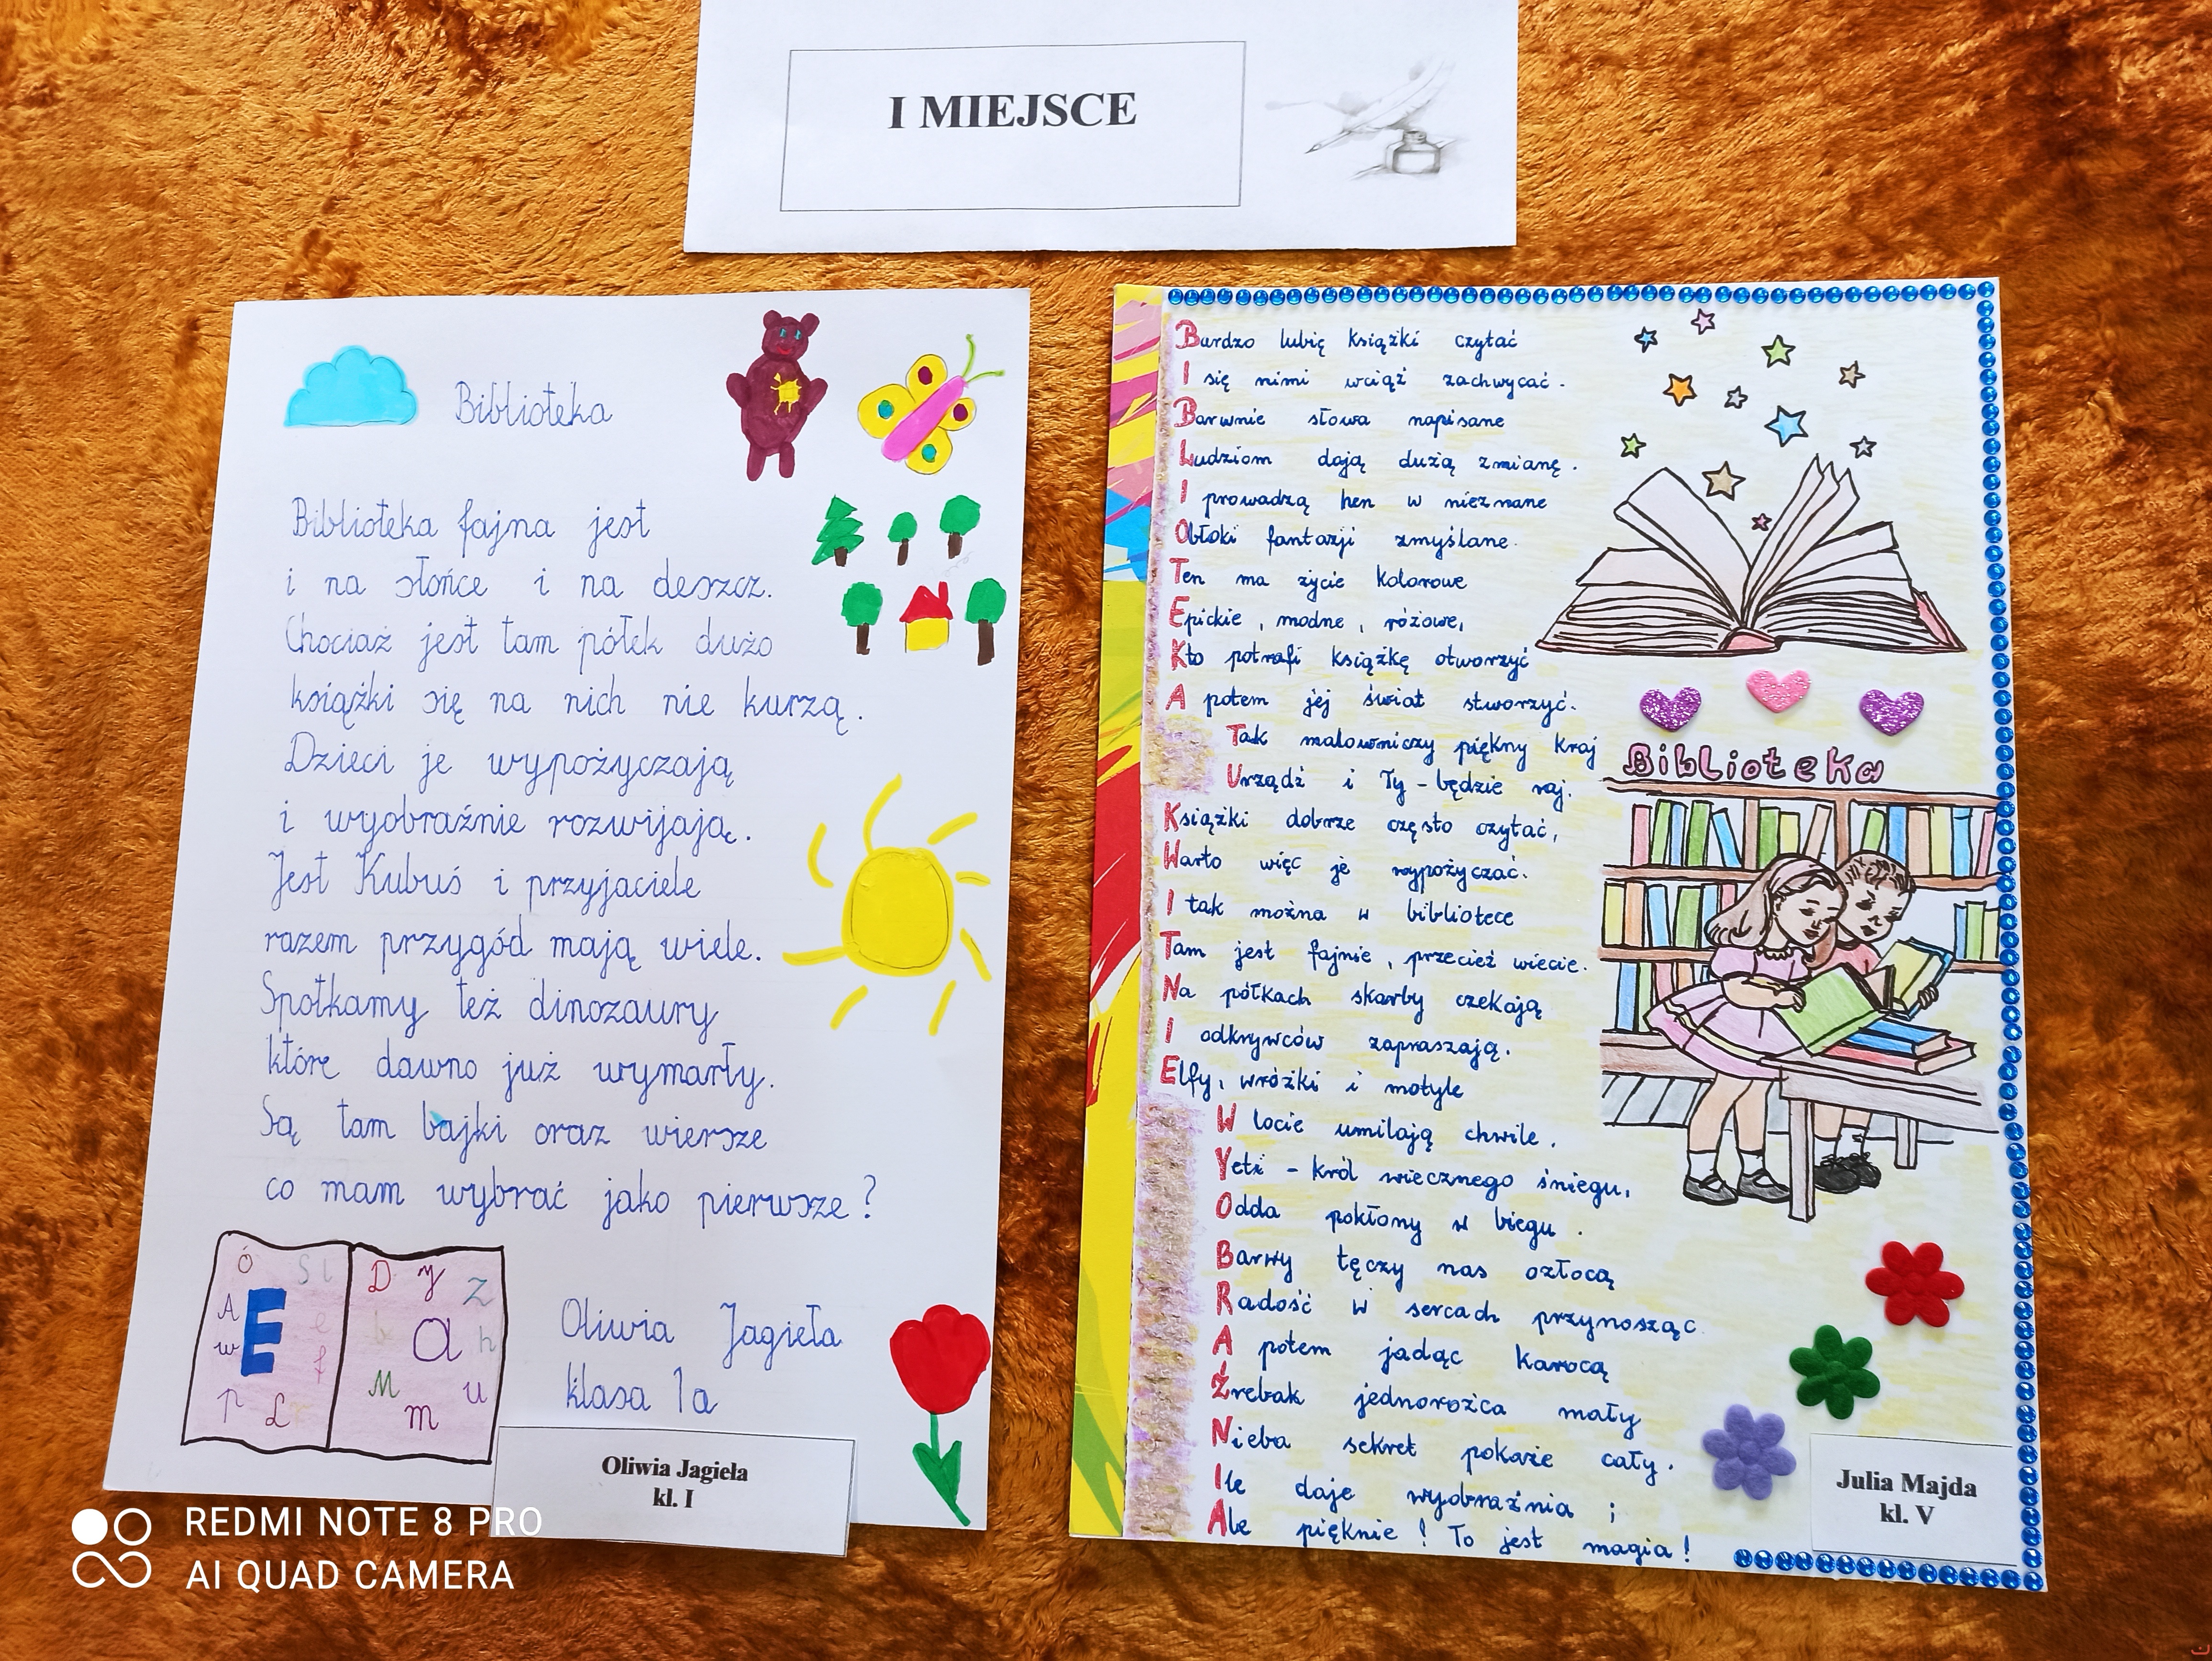 I MIEJSCE
Biblioteka
Biblioteka fajna jest
i na słońce i na deszcz.
Chociaż jest tam półek dużo
książki się na nich nie kurzą.
Dzieci je wypożyczają
i wyobraźnie rozwijają.
Jest Kubuś i przyjaciele
razem przygód mają wiele.
Spotkamy też dinozaury
które dawno już wymarły.
Są tam bajki oraz wiersze
co mam wybrać jako pierwsze?
Ó
A
w
E
p
L
D y z
a h
M m u
Oliwia Jagieła
klasa 1a
Oliwia Jagieła
kl. I
Bardzo lubię książki czytać
I się nimi wciąż zachwycać.
Barwnie słowa napisane
Ludziom dają dużą zmianę.
I prowadzą hen w nieznane
Obłoki fantazji zmyślane.
Ten ma życie kolorowe
Epickie, modne, różowe,
Kto potrafi książkę otworzyć
A potem jej świat stworzyć.
Tak malowniczy piękny kraj
Urządź i Ty - będzie raj.
Książki dobrze często czytać,
Warto więc je wypożyczać.
I tak można w bibliotece
Tam jest fajnie, przecież wiecie.
Na półkach skarby czekają
I odkrywców zapraszają.
Elfy, wróżki i motyle
W locie umilają chwile.
Yeti - król wiecznego śniegu,
Odda pokłony w biegu.
Barwy tęczy nas ozłocą
Radość w sercach przynosząc
A potem jadąc karocą
Źrebak jednorożca mały
Nieba sekret pokaże cały.
Ile daje wyobraźnia ;
Ale pięknie! To jest magia!
Biblioteka
Julia Majda
kl. V
REDMI NOTE 8 PRO
AI QUAD CAMERA